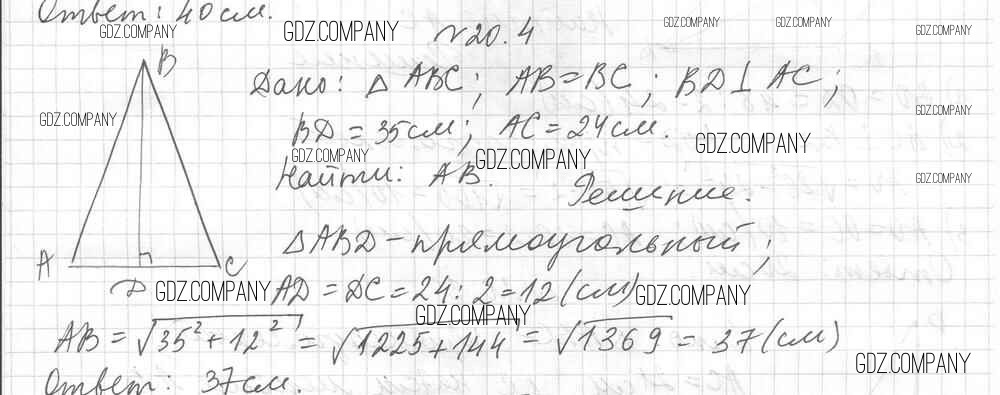 Ответ: 40 см.
GDZ.COMPANY GDZ.COMPANY №20.4 GDZ.COMPANY GDZ.COMPANY GDZ.COMPANY
B
Дано: △ ABC; AB = BC; BD ⊥ AC;
GDZ.COMPANY GDZ.COMPANY
BD = 35 см; AC = 24 см.
GDZ.COMPANY GDZ.COMPANY GDZ.COMPANY
Найти: AB. GDZ.COMPANY
Решение.
△ABD - прямоугольный;
A C
D GDZ.COMPANY AD = DC = 24 : 2 = 12 (см) GDZ.COMPANY
GDZ.COMPANY
AB = √35² + 12² = √1225 + 144 = √1369 = 37 (см)
GDZ.COMPANY
Ответ: 37 см.